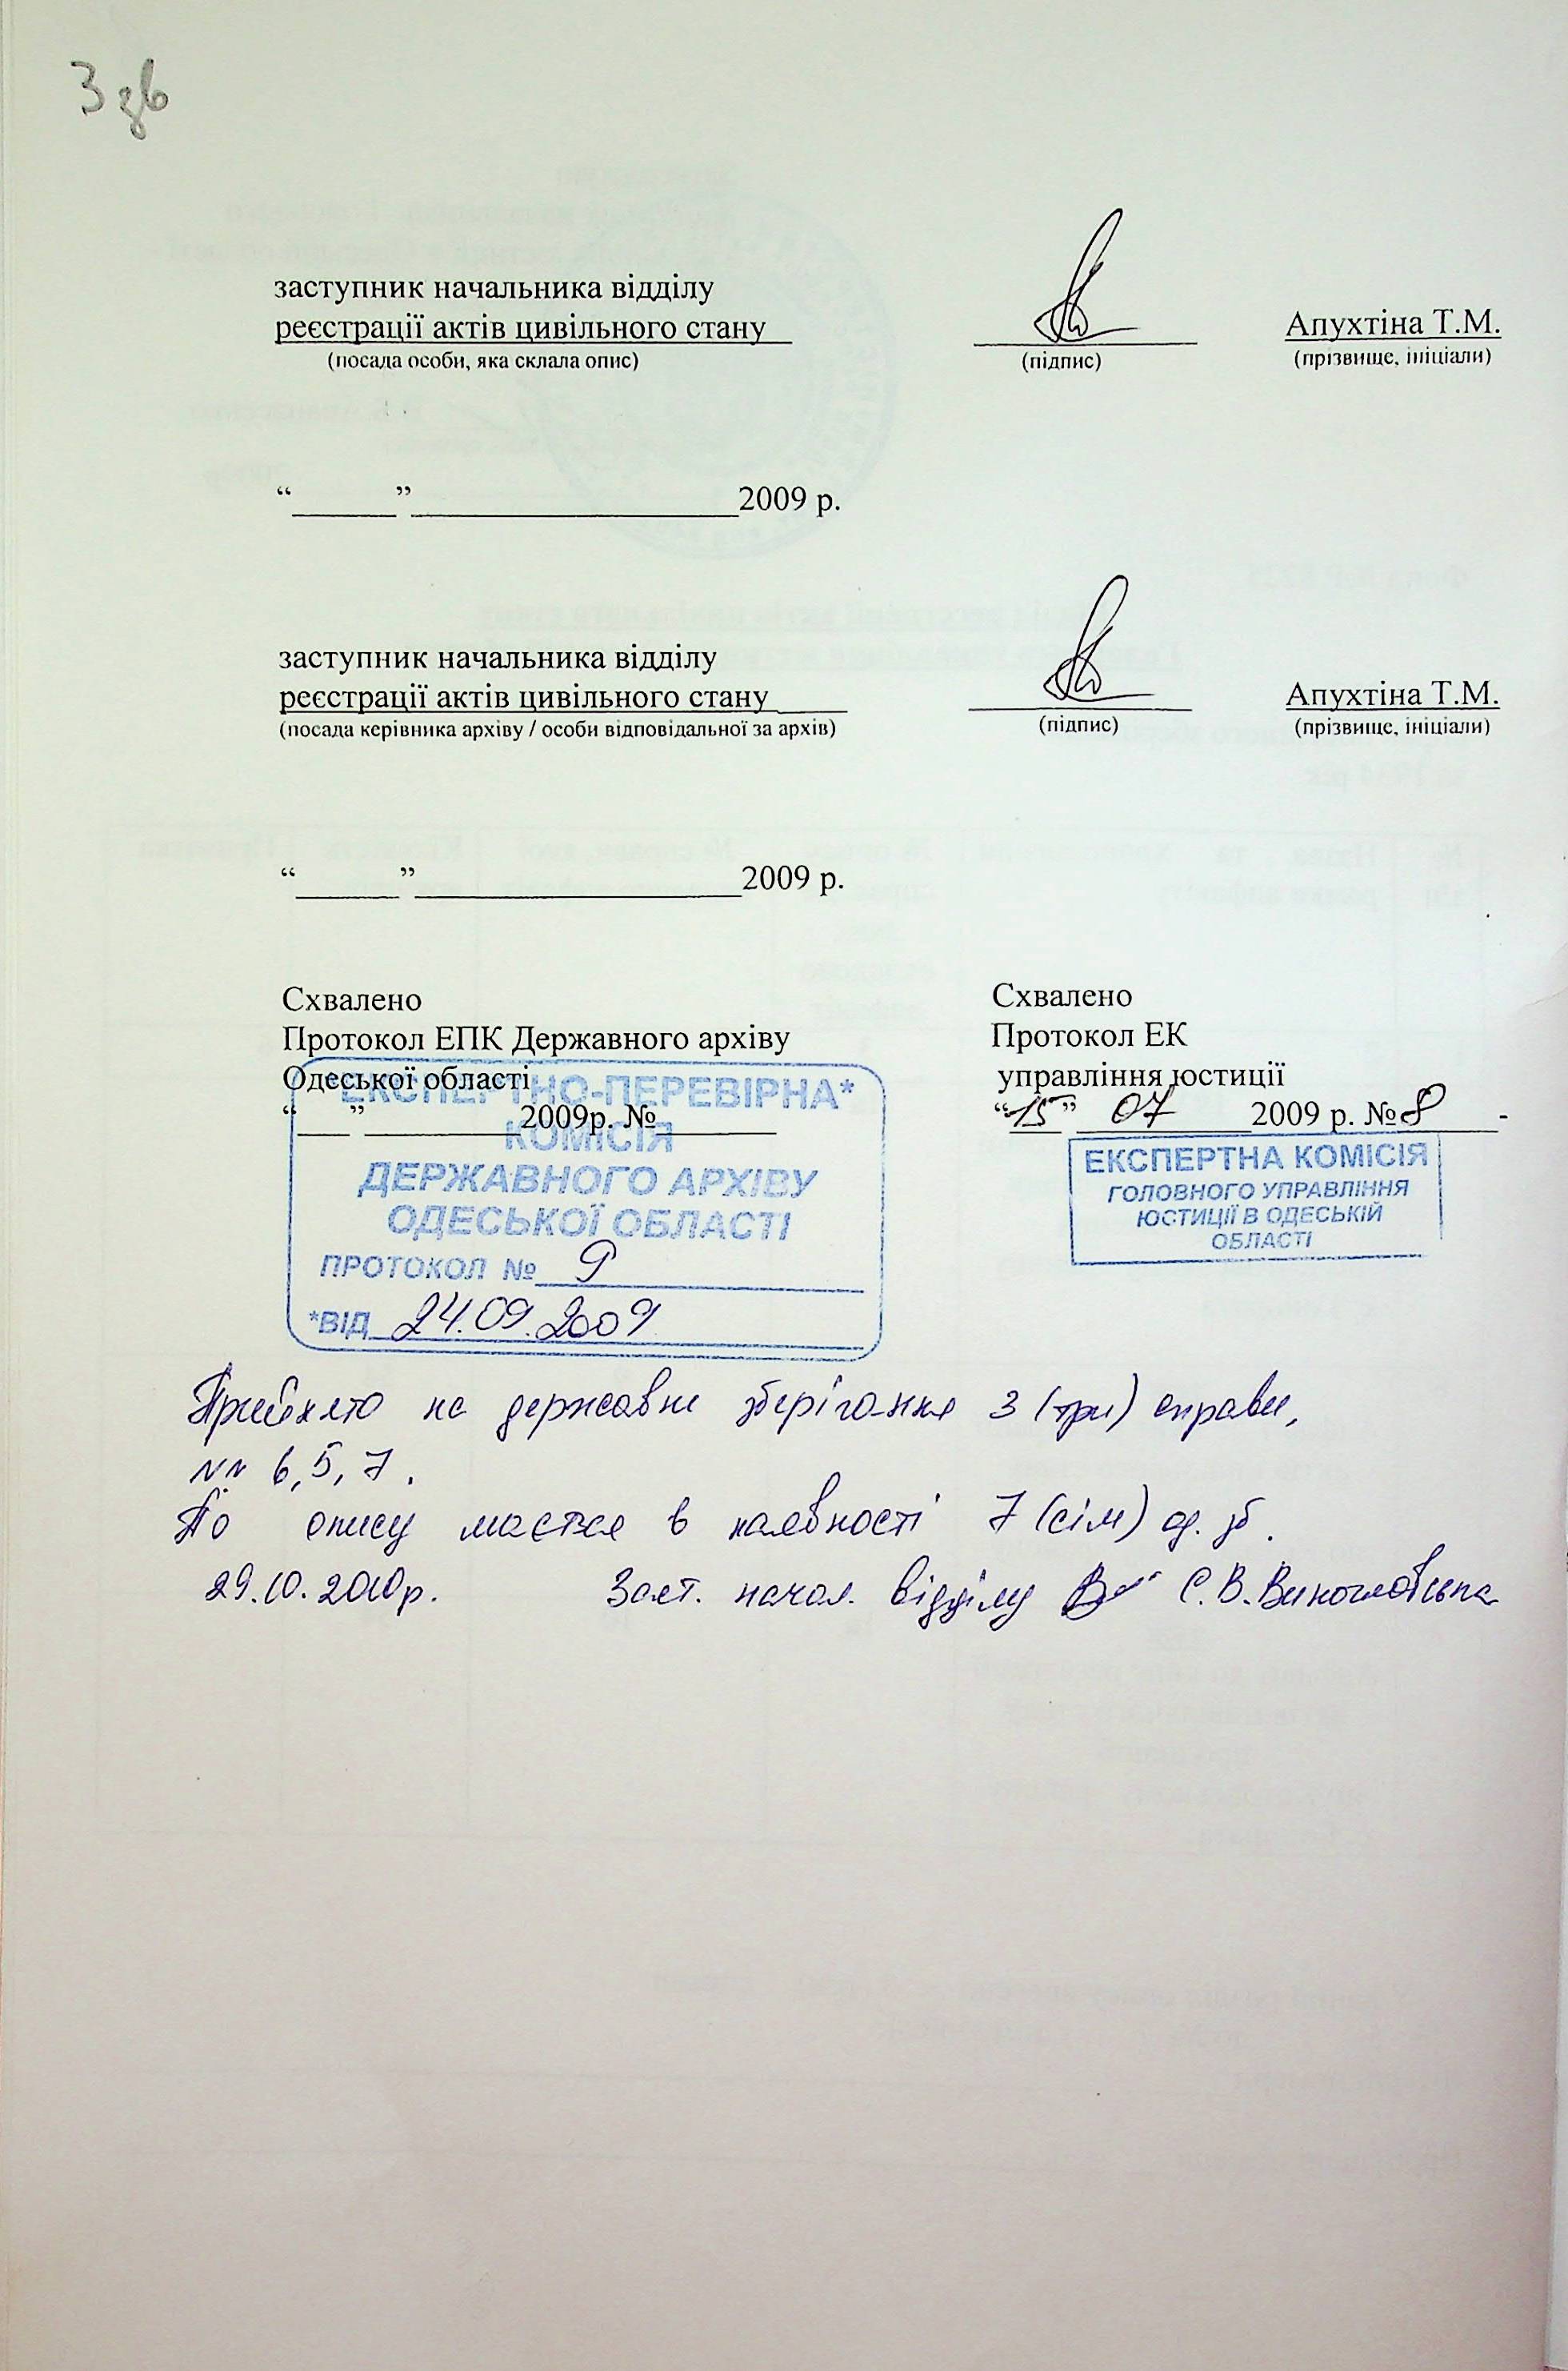 3 зв
заступник начальника відділу
реєстрації актів цивільного стану
(посада особи, яка склала опис)
(підпис)
Апухтіна Т.М.
(прізвище, ініціали)
“______”___________________2009 р.
заступник начальника відділу
реєстрації актів цивільного стану
(посада керівника архіву / особи відповідальної за архів)
(підпис)
Апухтіна Т.М.
(прізвище, ініціали)
“______”___________________2009 р.
Схвалено
Протокол ЕПК Державного архіву
Одеської області
“___” _________2009р. №_______
ЕКСПЕРТНО-ПЕРЕВІРНА*
КОМІСІЯ
ДЕРЖАВНОГО АРХІВУ
ОДЕСЬКОЇ ОБЛАСТІ
ПРОТОКОЛ № 9
*ВІД 24.09.2009
Схвалено
Протокол ЕК
управління юстиції
“15” 07 2009 р. № 8
ЕКСПЕРТНА КОМІСІЯ
ГОЛОВНОГО УПРАВЛІННЯ
ЮСТИЦІЇ В ОДЕСЬКІЙ
ОБЛАСТІ
Прийнято на державне зберігання 3 (три) справи,
NN 6, 5, 7.
По опису мається в наявності 7 (сім) од. зб.
29.10.2010р. Заст. начал. відділу С.В.